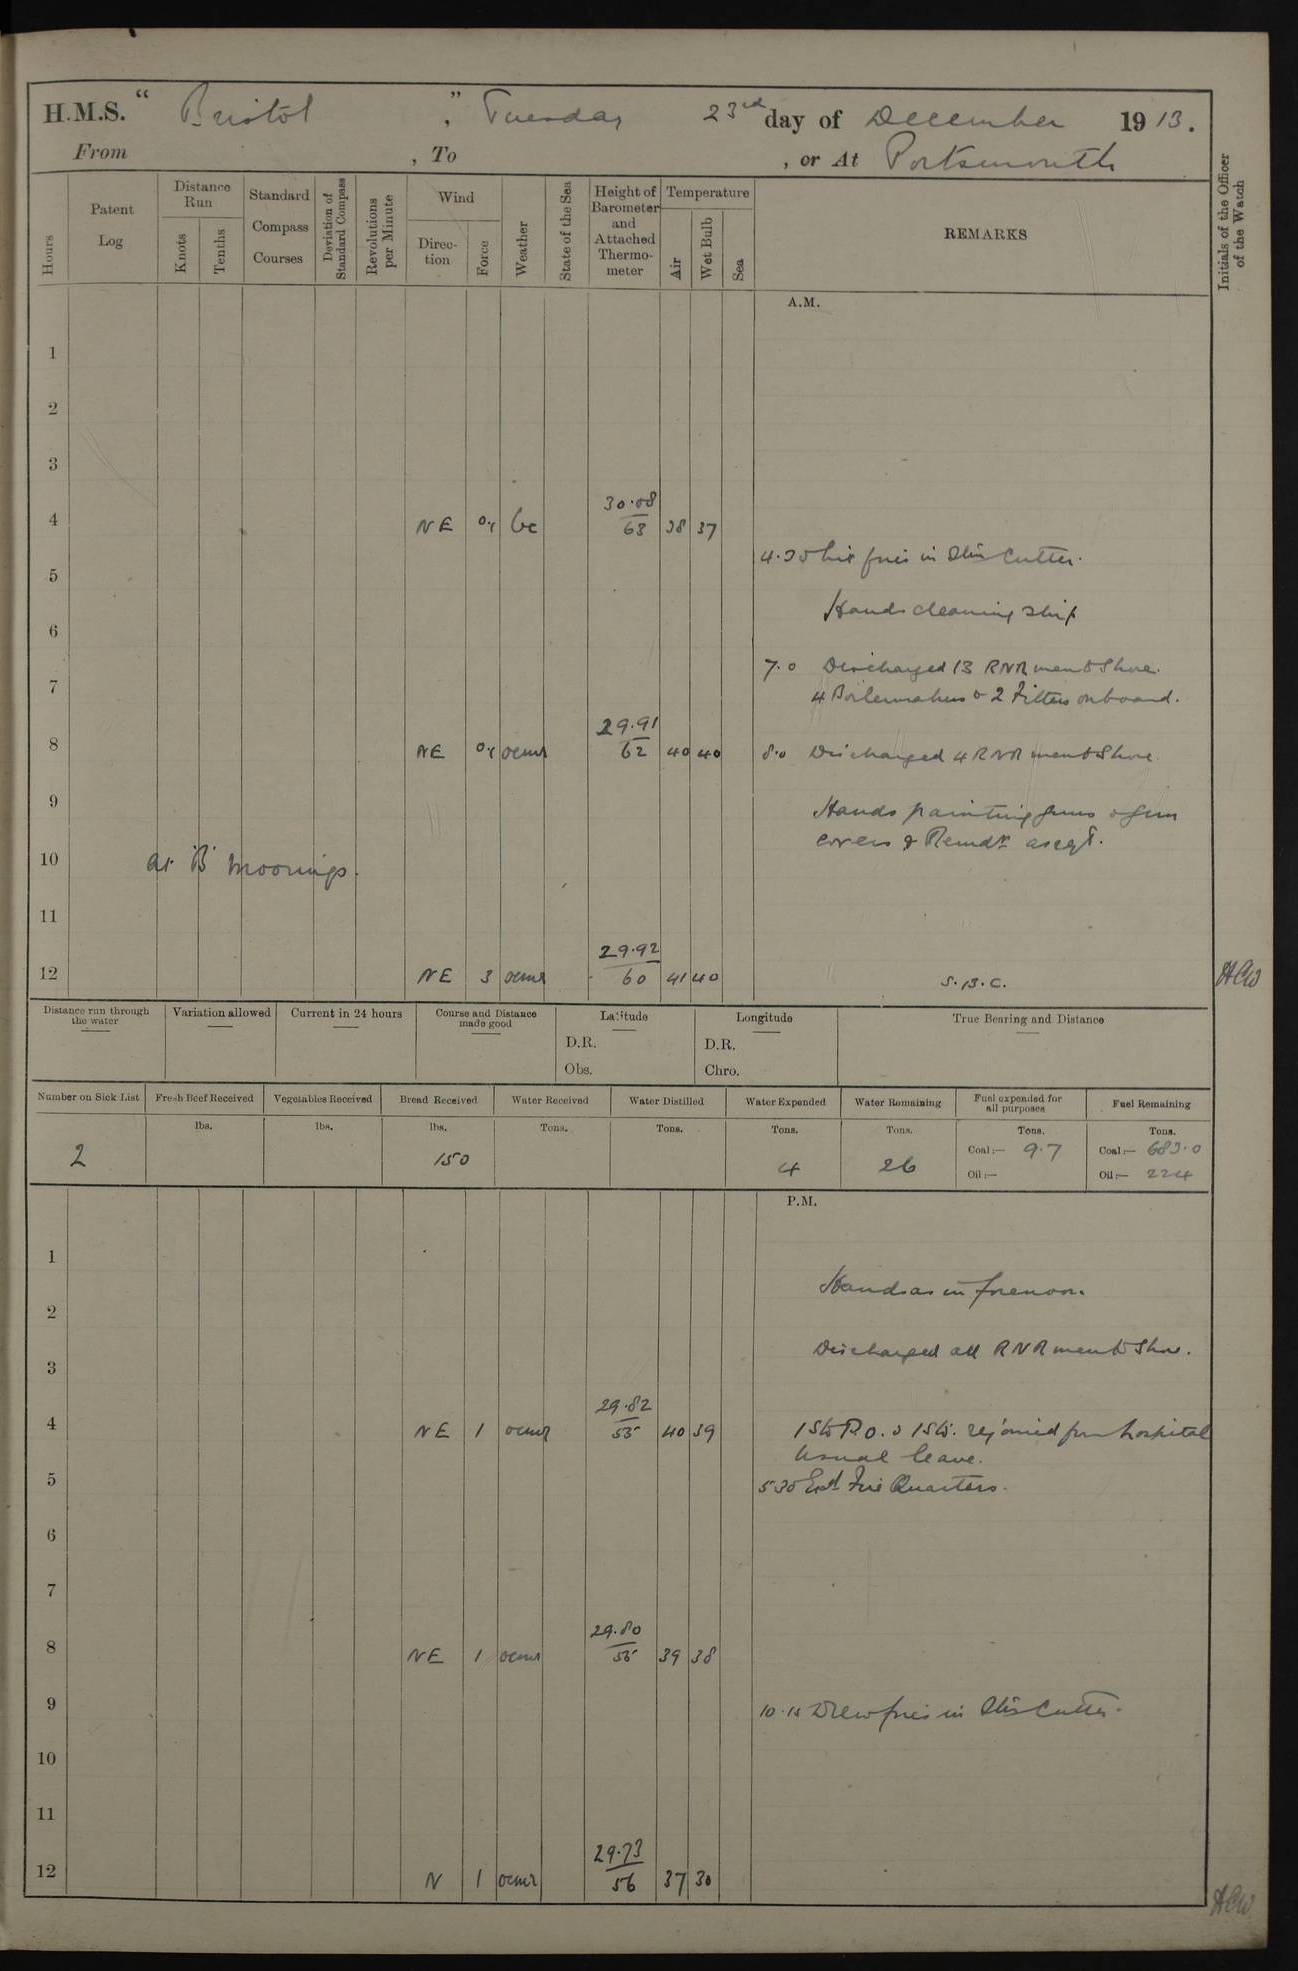 H.M.S. “ Bristol ” , Tuesday 23rd day of December 1913.
From , To , or At Portsmouth
Hours
Patent Log
Distance Run
Knots
Tenths
Standard Compass Courses
Deviation of Standard Compass
Revolutions per Minute
Wind
Direction
Force
Weather
State of the Sea
Height of Barometer and Attached Thermometer
Temperature
Air
Wet Bulb
Sea
REMARKS
Initials of the Officer of the Watch
A.M.
1
2
3
4 NE 0.1 bc 30.08 63 38 37
4.30 Lit fires in Stm Cutter.
5
Hands cleaning ship
6
7.0 Discharged 13 RNR men to Shore.
7
4 Boilermakers & 2 Fitters onboard.
8 NE 0.1 ocmr 29.91 62 40 40 8.0 Discharged 4 RNR men to Shore
9 Hands painting guns & gun
covers & Remdr. as reqd.
10 at 'B' moorings.
11
12 NE 3 ocmr 29.92 60 41 40 S.B.C. HCW
Distance run through the water
Variation allowed
Current in 24 hours
Course and Distance made good
Latitude
D.R.
Obs.
Longitude
D.R.
Chro.
True Bearing and Distance
Number on Sick List
Fresh Beef Received
Vegetables Received
Bread Received
Water Received
Water Distilled
Water Expended
Water Remaining
Fuel expended for all purposes
Fuel Remaining
lbs. lbs. lbs. Tons. Tons. Tons. Tons. Tons. Tons.
2 150 4 26 Coal:— 9.7 Coal:— 683.0
Oil:— Oil:— 224
P.M.
1
Hands as in forenoon.
2
Discharged all RNR men to Shore.
3
4 NE 1 ocmr 29.82 55 40 39 1 Sto P.O. & 1 Sto. rejoined from hospital
Usual leave.
5 5.30 Exd. Fire Quarters.
6
7
8 NE 1 ocmr 29.80 55 39 38
9 10.15 Drew fires in Stm Cutter.
10
11
12 N 1 ocmr 29.73 56 37 30
HCW